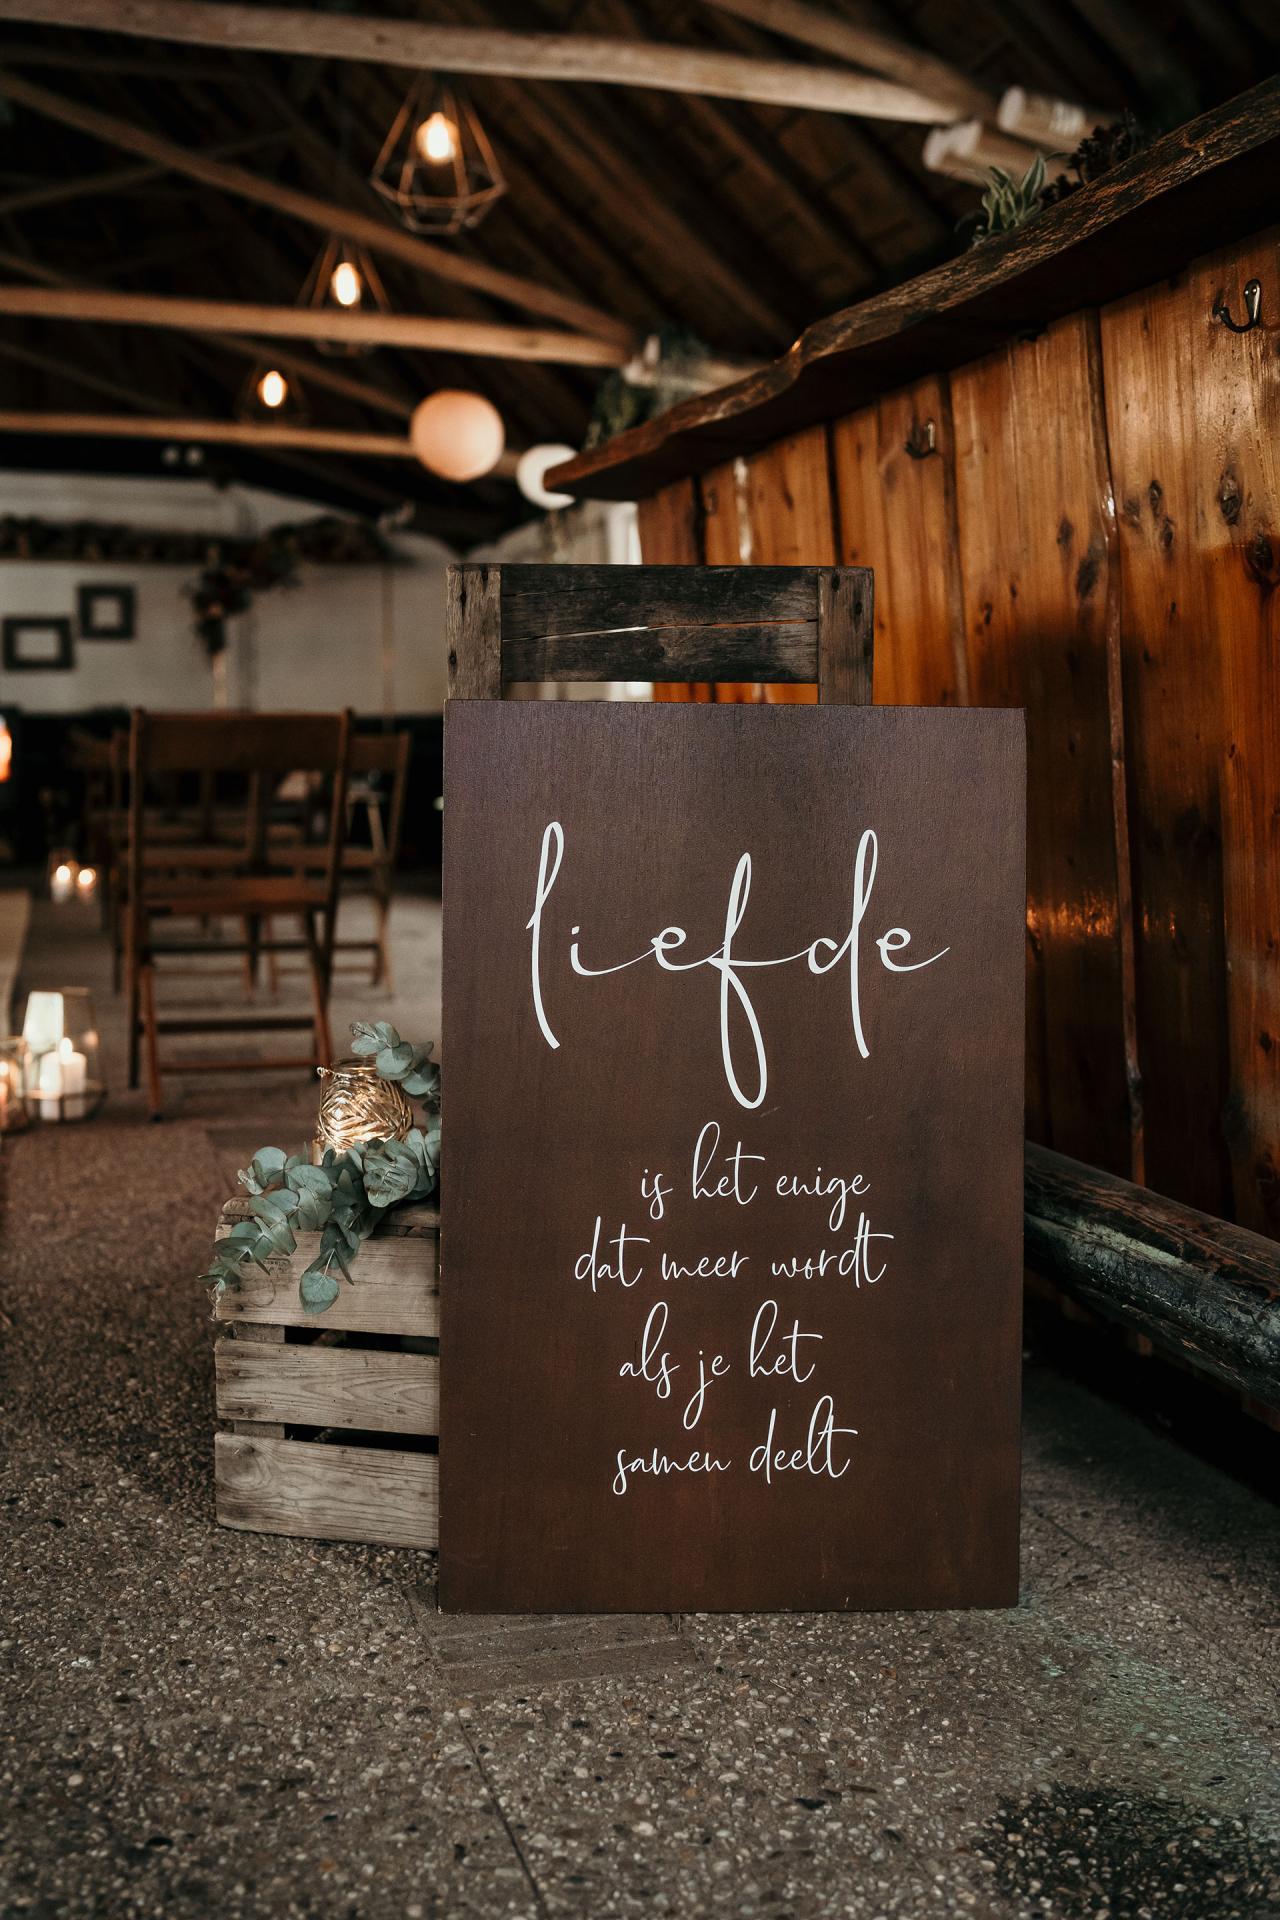 liefde
is het enige
dat meer wordt
als je het
samen deelt